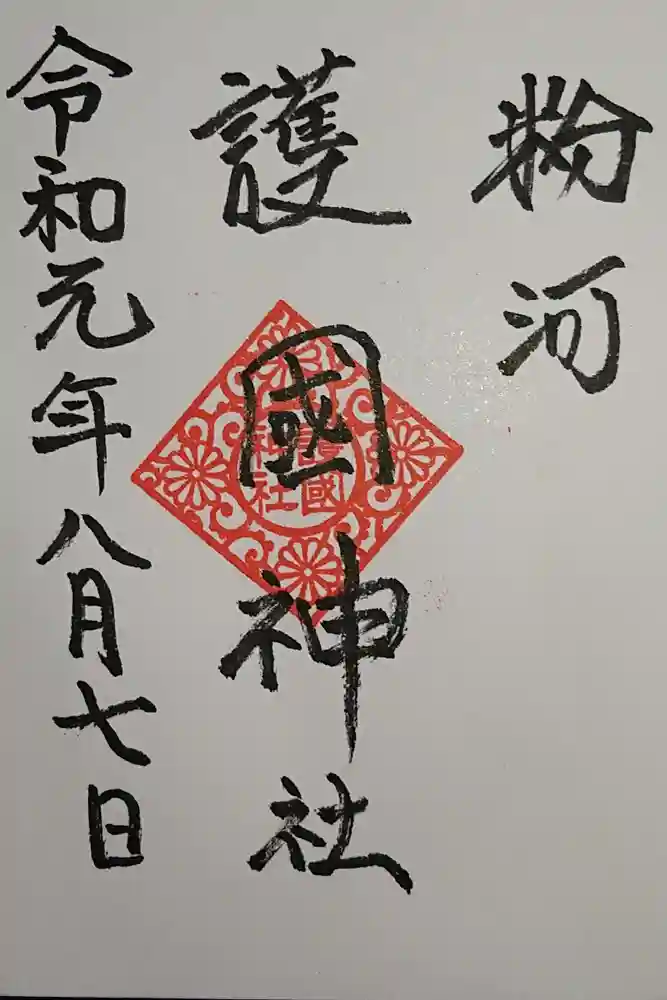 粉河
護國神社
護國
神社
令和元年八月七日